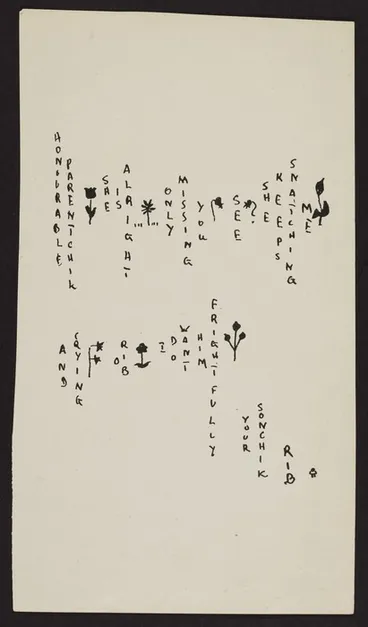 HONOURABLE PARENTCHIK SHE IS ALRIGHT ... ... ONLY MISSING YOU SEE ? SHE KEEPS SNATCHING ME
AND CRYING O RIB I DO WANT HIM FRIGHTFULLY
YOUR SONCHIK RIB